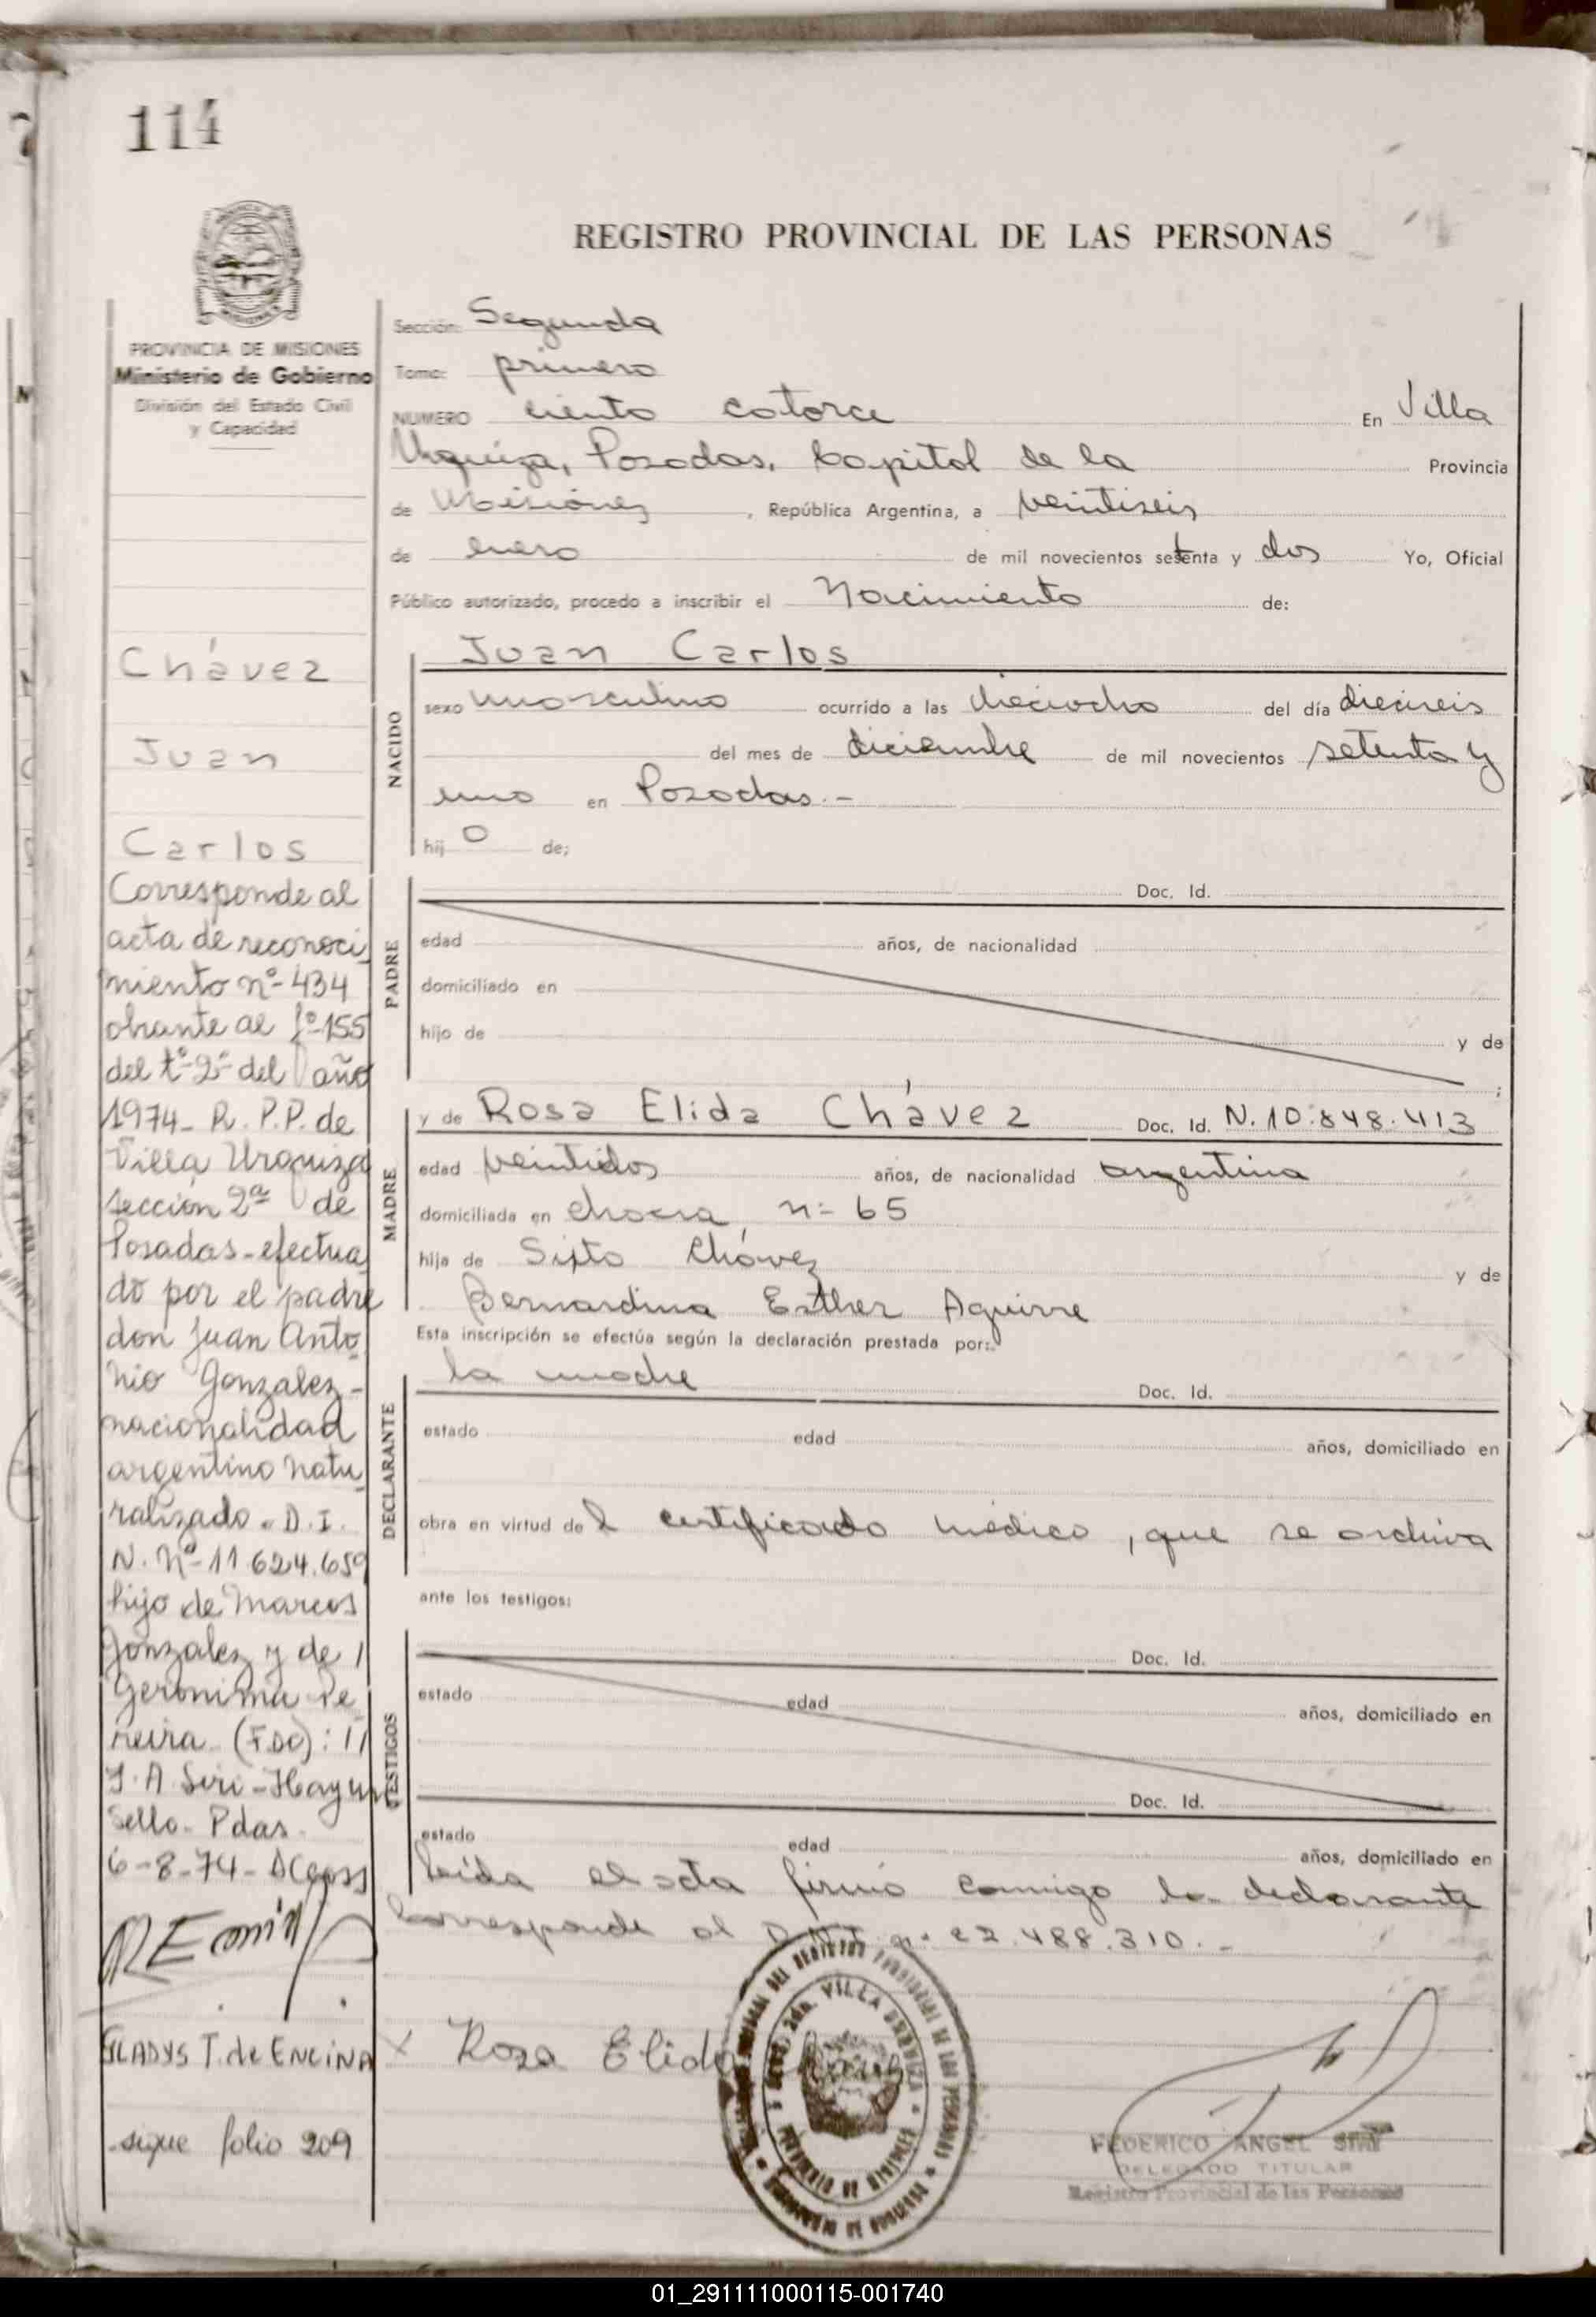 114
REGISTRO PROVINCIAL DE LAS PERSONAS
PROVINCIA DE MISIONES
Ministerio de Gobierno
División del Estado Civil
y Capacidad
Chávez
Juan
Carlos
Corresponde al
acta de reconoci
miento nº 434
obrante al fº 155
del tº 2º del año
1974- R. P.P. de
Villa Urquiza
sección 2ª de
Posadas-efectua
do por el padre
don Juan Anto
nio Gonzalez-
nacionalidad
argentino natu
ralizado. D. I.
N. Nº-11.624.659
hijo de Marcos
Gonzalez y de
Geronima Pe
reira. (FDO):
J. A. Siri-Hay un
Sello- Pdas.
6-8-74-
GLADYS T. de ENCINA
sigue folio 209
Sección: Segunda
Tomo: primero
NUMERO ciento catorce En Villa
Urquiza, Posadas, Capital de la Provincia
de Misiones, República Argentina, a veintiseis
de enero de mil novecientos setenta y dos Yo, Oficial
Público autorizado, procedo a inscribir el Nacimiento de:
NACIDO
Juan Carlos
sexo masculino ocurrido a las dieciocho del día dieciseis
del mes de diciembre de mil novecientos setenta y
uno en Posadas.-
hijo de;
PADRE
Doc. Id.
edad años, de nacionalidad
domiciliado en
hijo de y de
;
MADRE
y de Rosa Elida Chávez Doc. Id. N.10.848.413
edad veintidos años, de nacionalidad argentina
domiciliada en chacra nº 65
hija de Sixto Chávez y de
Bernardina Esther Aguirre
Esta inscripción se efectúa según la declaración prestada por:
DECLARANTE
la madre Doc. Id.
estado edad años, domiciliado en
obra en virtud del certificado médico, que se archiva
ante los testigos:
TESTIGOS
Doc. Id.
estado edad años, domiciliado en
Doc. Id.
estado edad años, domiciliado en
Leída el acta firmó conmigo la declarante
Corresponde al D.N.I. nº 22.488.310.-
x Rosa Elida
VILLA URQUIZA
PROVINCIA DE MISIONES
FEDERICO ANGEL SIRI
DELEGADO TITULAR
Registro Provincial de las Personas
01_291111000115-001740